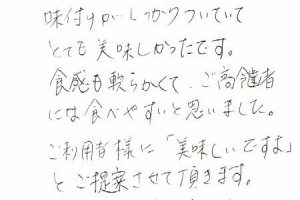 味付けがしっかりついていて
とても美味しかったです。
食感も軟らかくて、ご高齢者
には食べやすいと思いました。
ご利用者様に「美味しいですよ」
とご提案させて頂きます。